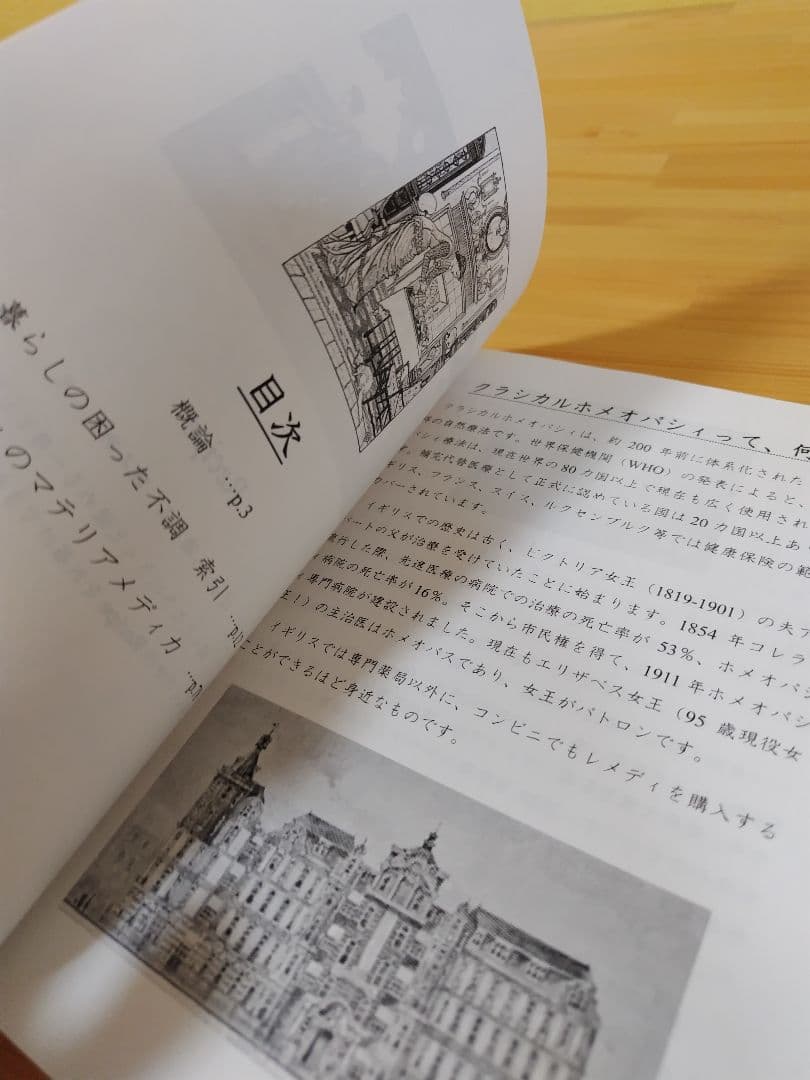 目次
概論 …p.3
暮らしの困った不調 索引 …p.
のマテリアメディカ …p.
クラシカルホメオパシィって、何
クラシカルホメオパシィは、約 200 年前に体系化された
の自然療法です。世界保健機関（WHO）の発表によると、
パシィ療法は、現在世界の 80 カ国以上で現在も広く使用され
す。補完代替医療として正式に認めている国は 20 カ国以上あ
ギリス、フランス、スイス、ルクセンブルク等では健康保険の範
カバーされています。
イギリスでの歴史は古く、ビクトリア女王（1819-1901）の夫ア
バートの父が治療を受けていたことに始まります。1854 年コレラ
流行した際、先進医療の病院での治療の死亡率が 53%、ホメオパ
ィ病院の死亡率が 16%。そこから市民権を得て、1911 年ホメオパシ
ィ専門病院が建設されました。現在もエリザベス女王（95 歳現役女
王！）の主治医はホメオパスであり、女王がパトロンです。
イギリスでは専門薬局以外に、コンビニでもレメディを購入する
ことができるほど身近なものです。